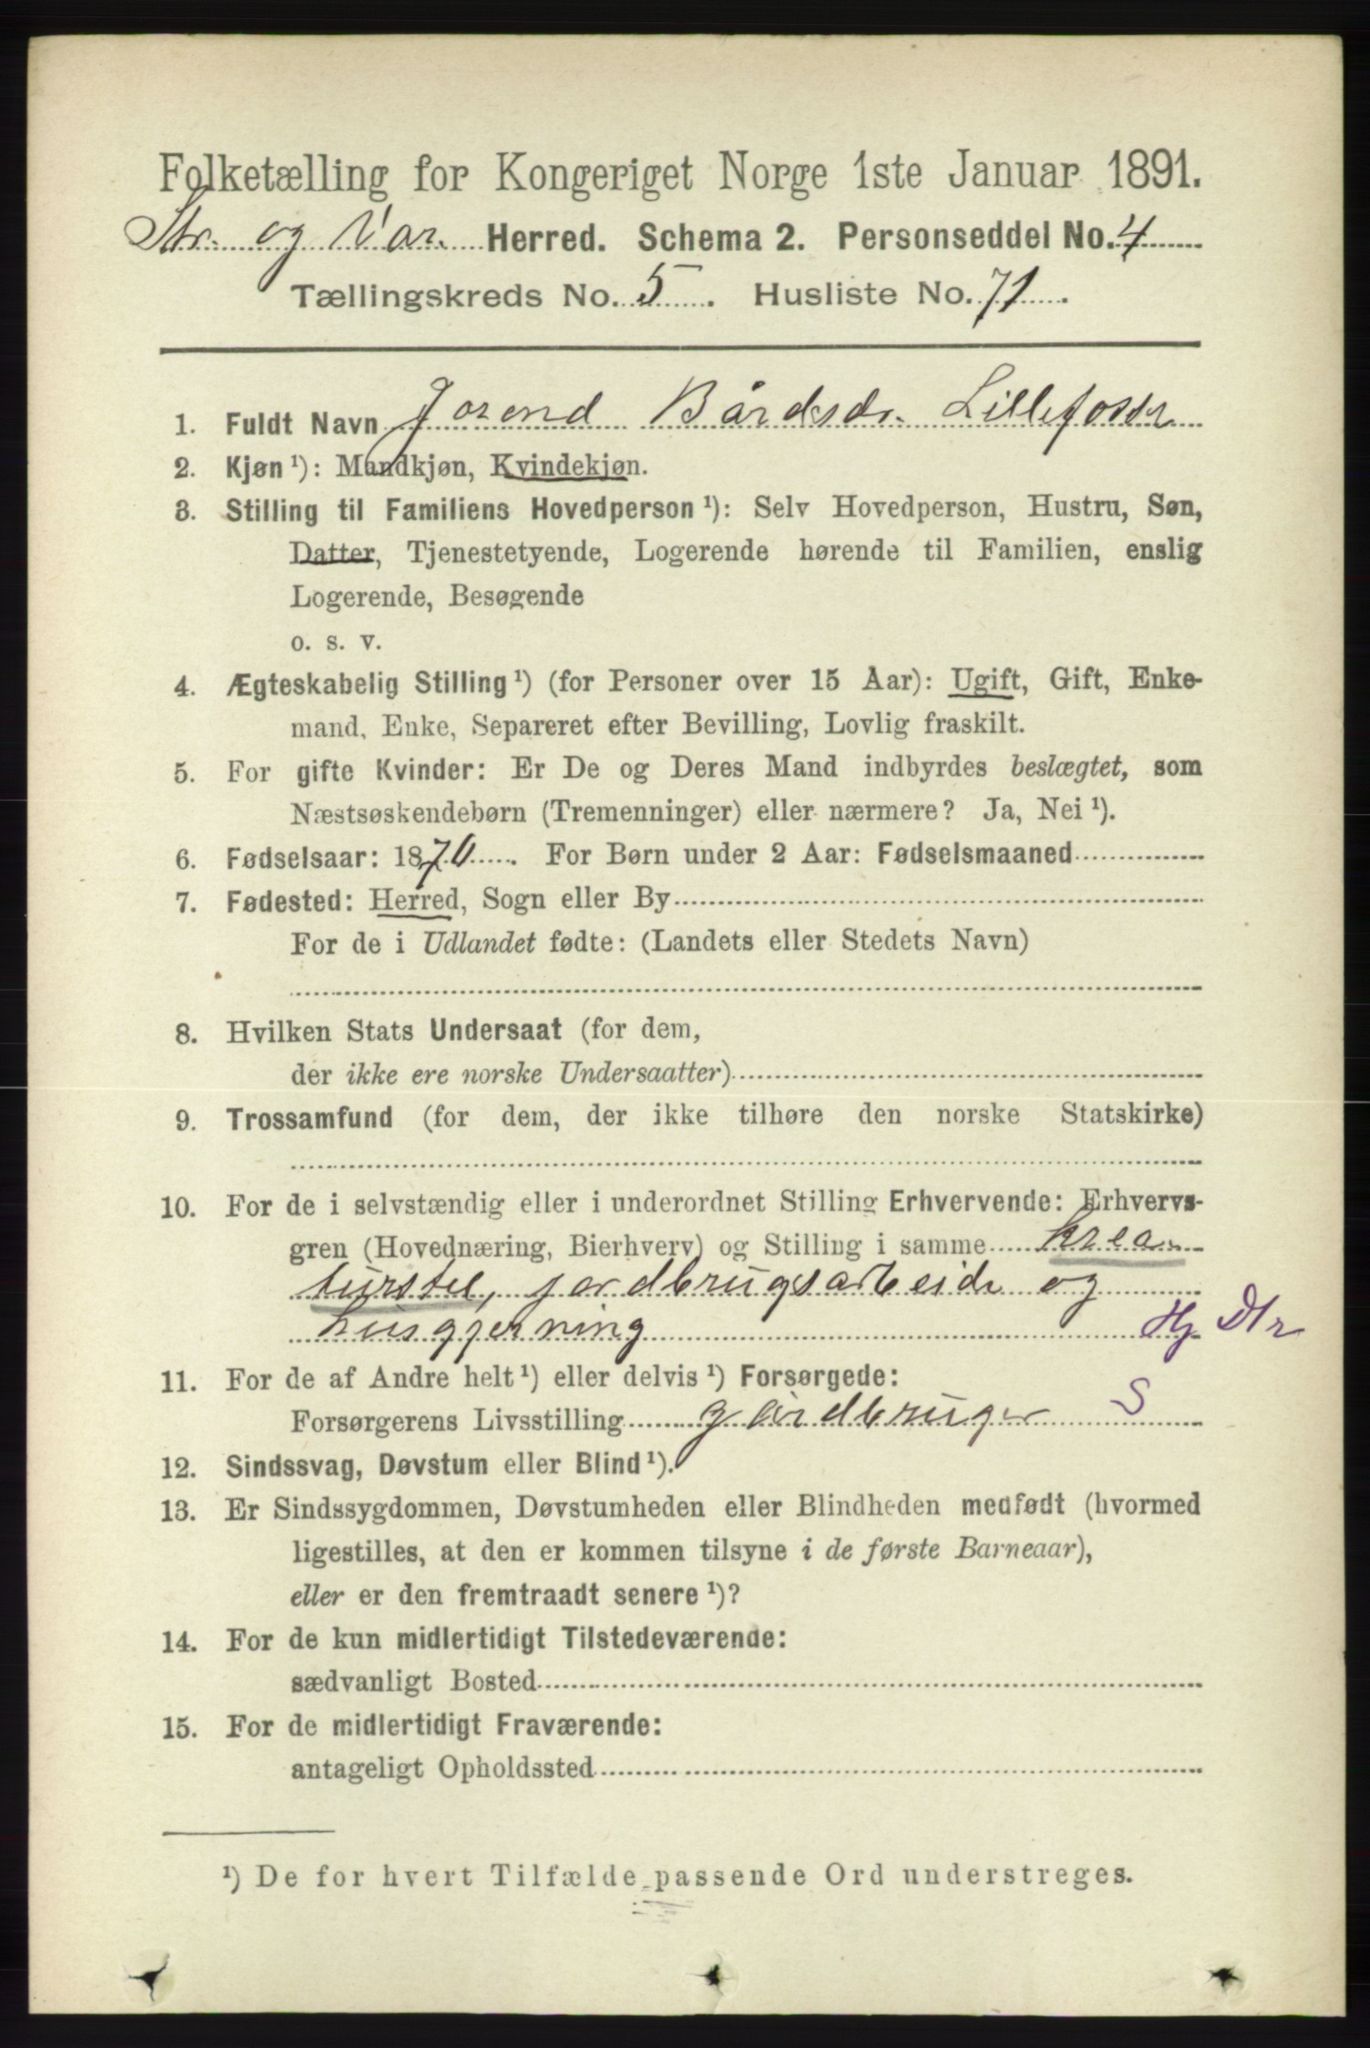 Folketælling for Kongeriget Norge 1ste Januar 1891.
Str. og Var. Herred. Schema 2. Personseddel No. 4
Tællingskreds No. 5. Husliste No. 71.
1. Fuldt Navn Jorend Bårdsdr. Lillefosse
2. Kjøn ¹): Mandkjøn, Kvindekjøn.
3. Stilling til Familiens Hovedperson ¹): Selv Hovedperson, Hustru, Søn,
Datter, Tjenestetyende, Logerende hørende til Familien, enslig
Logerende, Besøgende
o. s. v.
4. Ægteskabelig Stilling ¹) (for Personer over 15 Aar): Ugift, Gift, Enke-
mand, Enke, Separeret efter Bevilling, Lovlig fraskilt.
5. For gifte Kvinder: Er De og Deres Mand indbyrdes beslægtet, som
Næstsøskendebørn (Tremenninger) eller nærmere? Ja, Nei ¹).
6. Fødselsaar: 1870. For Børn under 2 Aar: Fødselsmaaned
7. Fødested: Herred, Sogn eller By
For de i Udlandet fødte: (Landets eller Stedets Navn)
8. Hvilken Stats Undersaat (for dem,
der ikke ere norske Undersaatter)
9. Trossamfund (for dem, der ikke tilhøre den norske Statskirke)
10. For de i selvstændig eller i underordnet Stilling Erhvervende: Erhvervs-
gren (Hovednæring, Bierhverv) og Stilling i samme krea-
turstel, jordbrugsarbeide og
husgjerning Hj. Dtr
11. For de af Andre helt ¹) eller delvis ¹) Forsørgede:
Forsørgerens Livsstilling gårdbruger S
12. Sindssvag, Døvstum eller Blind ¹).
13. Er Sindssygdommen, Døvstumheden eller Blindheden medfødt (hvormed
ligestilles, at den er kommen tilsyne i de første Barneaar),
eller er den fremtraadt senere ¹)?
14. For de kun midlertidigt Tilstedeværende:
sædvanligt Bosted
15. For de midlertidigt Fraværende:
antageligt Opholdssted
¹) De for hvert Tilfælde passende Ord understreges.